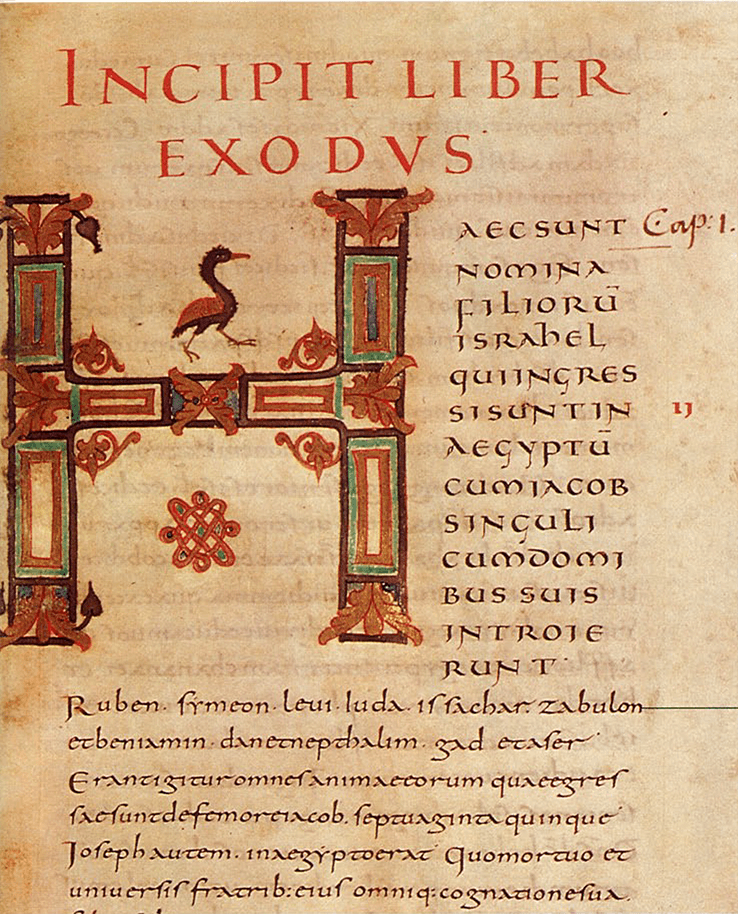 INCIPIT LIBER
EXODVS
HAEC SUNT Cap: 1.
NOMINA
FILIORŪ
ISRAHEL
QUI INGRES
SI SUNT IN IJ
AEGYPTŪ
CUM IACOB
SINGULI
CUM DOMI
BUS SUIS
INTROIE
RUNT
Ruben. symeon. leui. Iuda. issachar. zabulon
et beniamin. dan et nepthalim. gad et aser
Erant igitur omnes animae eorum quae egres
sae sunt de femore iacob. septuaginta quinque
Ioseph autem. in aegypto erat Quo mortuo et
uniuersis fratrib: eius omniq: cognatione sua.